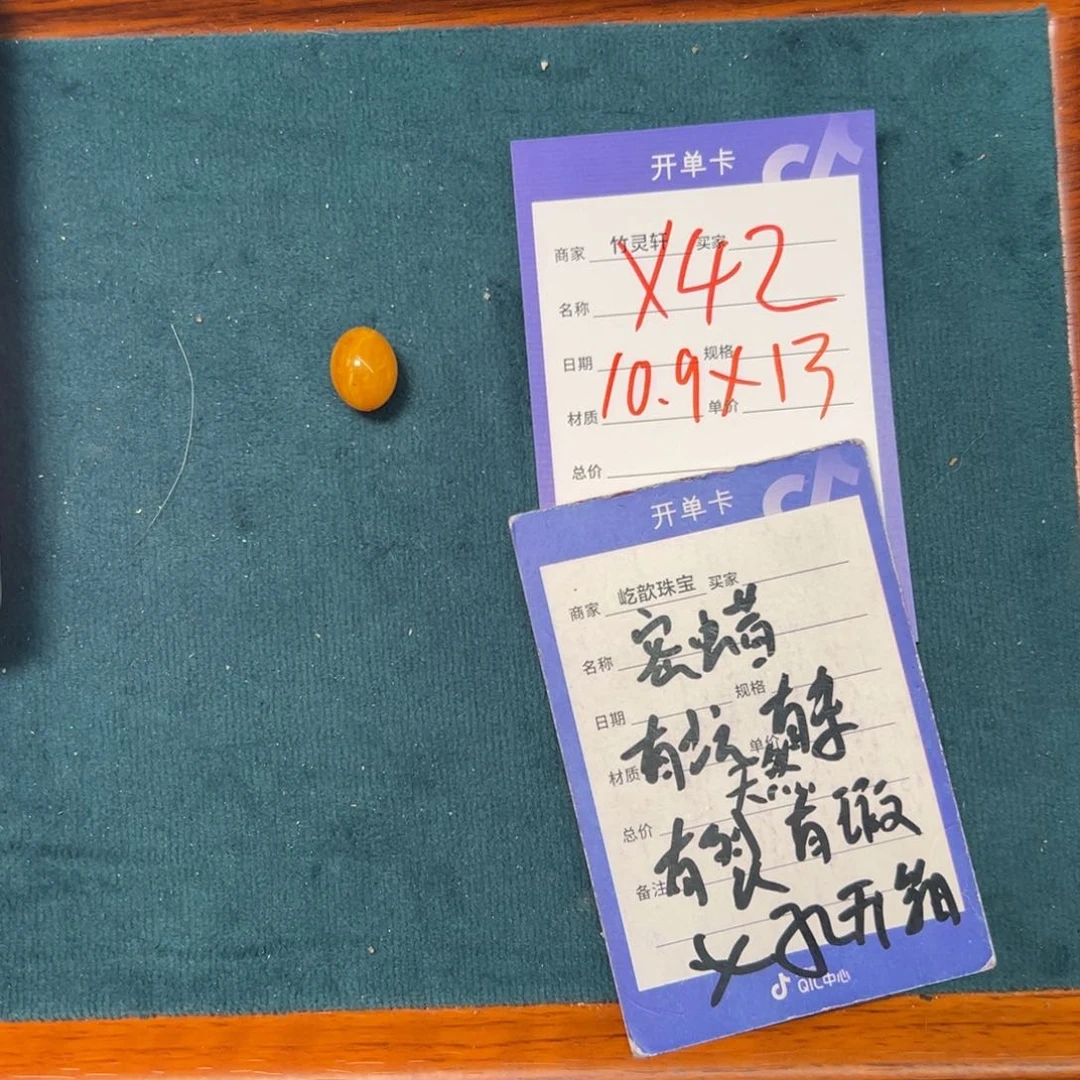 开单卡
商家 竹灵轩 买家
X42
名称
日期 规格
10.9X13
材质 单价
总价
开单卡
商家 屹歆珠宝 买家
密蜡
名称
规格
日期
有坑 有
单价
材质
天然
总价
有裂 有瑕
备注
孔开
QIC中心